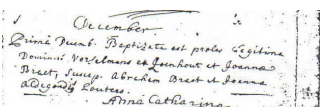 December
Prima Decemb. Baptizata est proles Legitima
Domini Vorselmans et Joanna
Braet, Suscep. Abraham Braet et Joanna
Aldegondis Wouters.
Anna Catharina